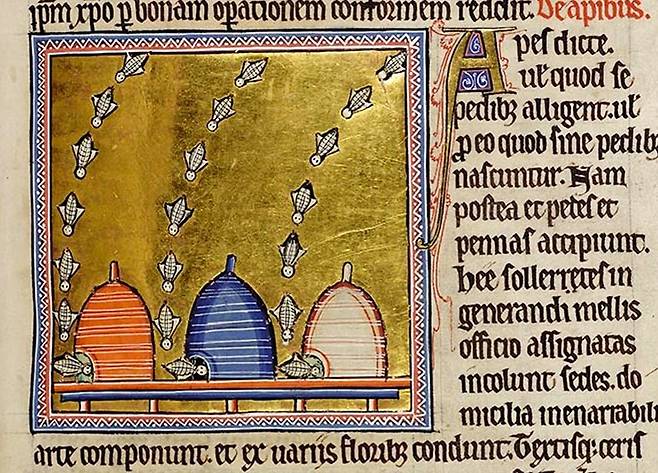 ip̄m xp̄o ꝑ bonam oꝑationem conformem reddit. De apibus.
Apes dicte.
uł quod se
pedibꝫ alligent. uł
ꝓ eo quod sine pedibꝫ
nascuntur. Nam
postea et pedes et
pennas accipiunt.
hee sollertes in
generandi mellis
officio assignatas
incolunt sedes. do
micilia inenarrabili
arte componunt. et ex uariis floribꝫ condunt. Textisqꝫ ceris